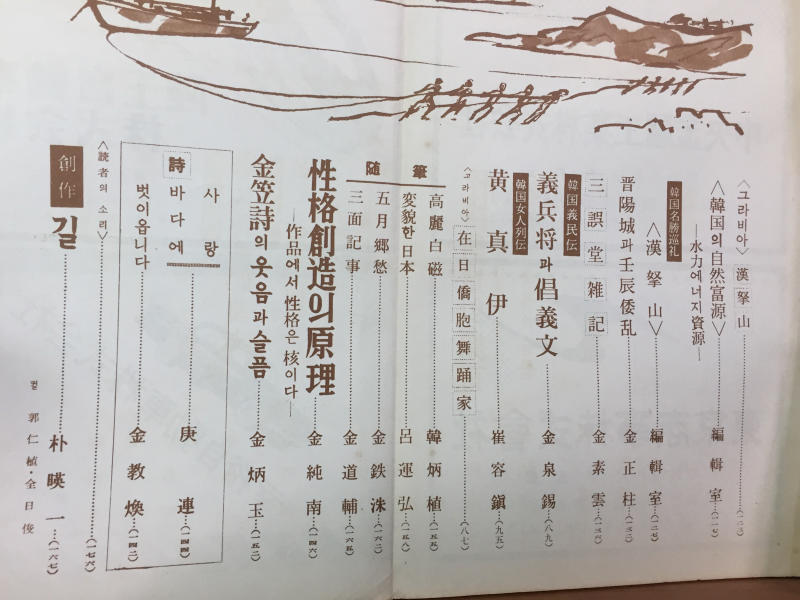 〈그라비아〉 漢拏山……(一二三)
〈韓国의 自然富源〉
―水力에너지資源― ……編輯室…(一一七)
韓国名勝巡礼
〈漢拏山〉……編輯室…(一二七)
晋陽城과 壬辰倭乱……金正柱…(一三一)
三誤堂雑記……金素雲…(一三六)
韓国義民伝
義兵将과 倡義文……金泉錫…(八九)
韓国女人列伝
黄真伊……崔容鎭…(九五)
〈고라비아〉 在日僑胞舞踊家……(八七)
随筆
高麗白磁……韓炳植…(一五五)
変貌한 日本……呂運弘…(一五八)
五月郷愁……金鉄洙…(一六二)
三面記事……金道輔…(一六五)
性格創造의 原理……金純南…(一四六)
―作品에서 性格은 核이다―
金笠詩의 웃음과 슬픔……金炳玉…(一五二)
詩
사랑
바다에……庚連…(一四四)
벗이옵니다……金教煥…(一四二)
〈読者의 소리〉……(一七六)
創作
길……朴暎一…(一六七)
컽 郭仁植・全日俊